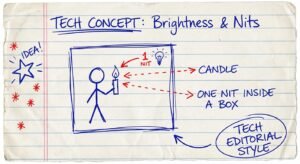 TECH CONCEPT: Brightness & Nits
IDEA!
1
NIT
CANDLE
ONE NIT INSIDE
A BOX
TECH
EDITORIAL
STYLE